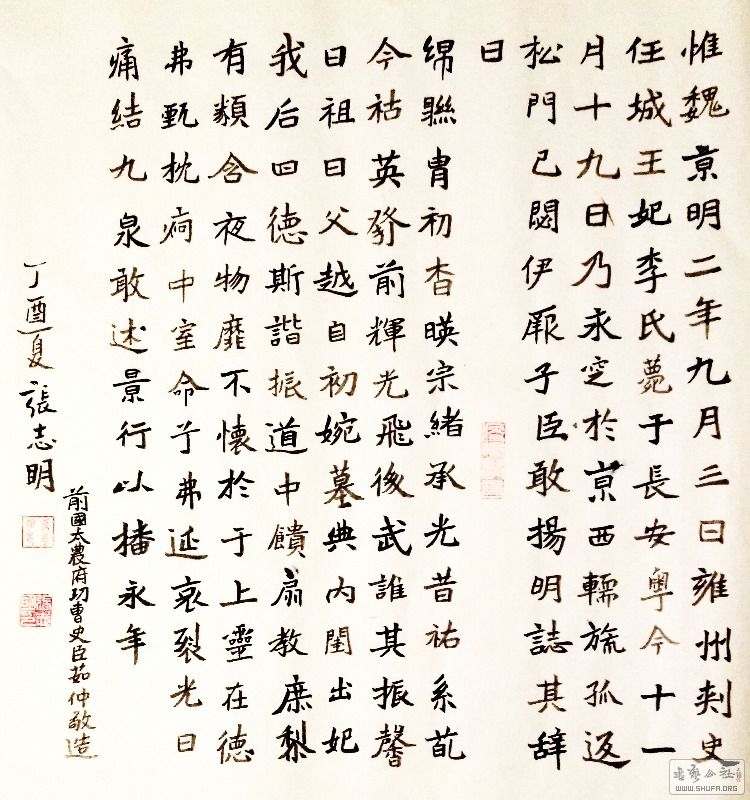 惟魏亰明二年九月三日雍州刾史
任城王妃李氏薨于長安粵今十一
月十九日乃永窆於亰西轜旒孤返
松門已閟伊厥子臣敢揚明誌其辞
曰
綿聮胄初杳暎宗緒承光昔祐系苽
今祜英發前輝光飛後武誰其振馨
曰祖曰父越自初婉墓典内閨出妃
我后四德斯諧振道中饋扇教庶梨
有纇含夜物靡不懷於于上靈在德
弗甄枕痾中室命兮弗延哀裂光日
痛結九泉敢述景行以播永年
前國太農府功曹史臣茹仲敬造
丁酉夏張志明
WWW.SHUFA.ORG